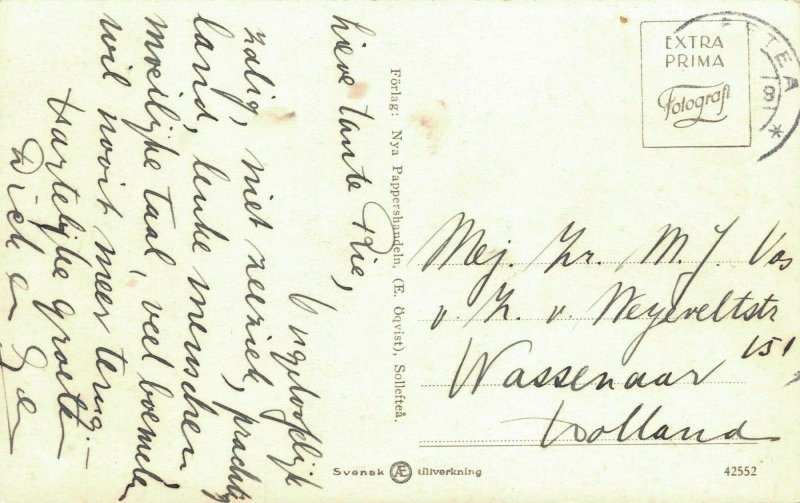 Lieve tante Rie,
Ongelooflijk
zalig, niet zeeziek, prachtig
land, leuke menschen
moeilijke taal, veel boemelen
wil nooit meer terug. —
Hartelijke groeten
Dick en
Förlag: Nya Pappershandeln, (E. Öqvist), Sollefteå.
EXTRA
PRIMA
Fotografi
FTEÅ
18
Mej. Zr. M. J. Vos
v. Z. v. Neyeveltstr
151
Wassenaar
Holland
Svensk Æ tillverkning
42552